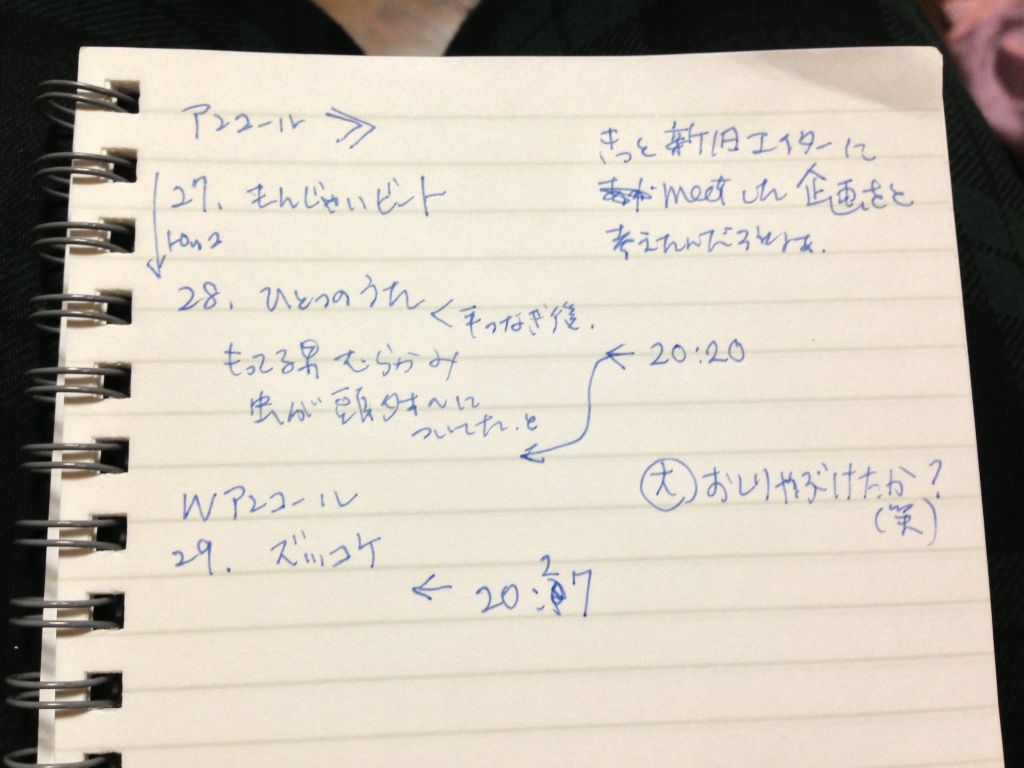 アンコール ≫
きっと新旧エイターに
meetした企画をと
考えたんだろうなぁ.
27. もんじゃいビート
28. ひとつのうた
< 手つなぎ後.
もってる男 むらかみ
← 20:20
虫が 頭
についてた.と
大 おしりやぶけたか?
(笑)
Wアンコール
29. ズッコケ
← 20:27